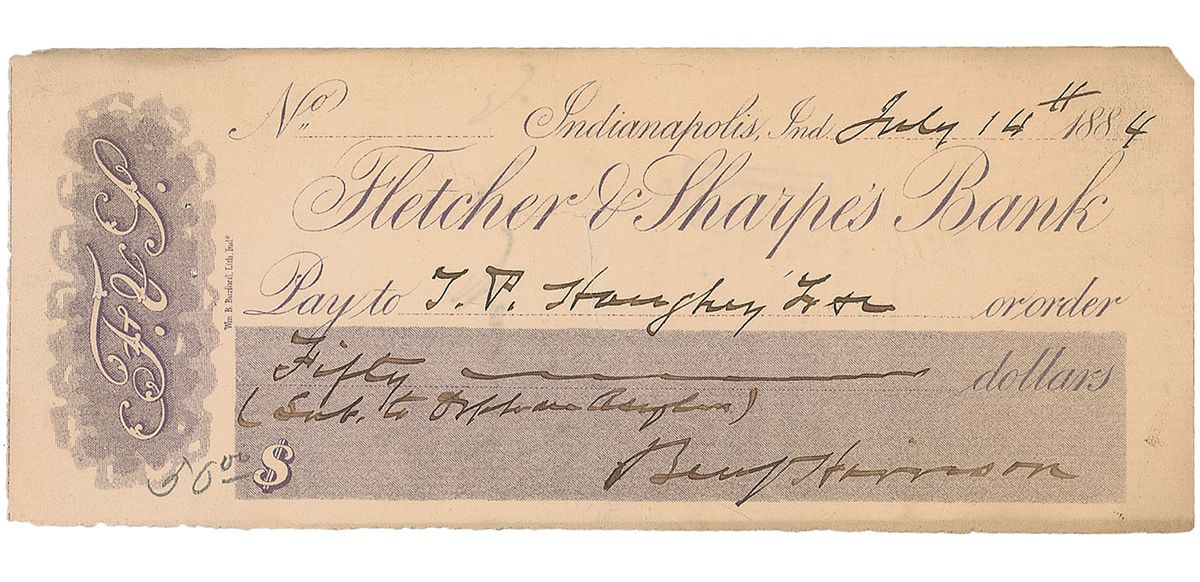 No. Indianapolis, Ind. July 14th 1884
Fletcher & Sharpe's Bank
Pay to T. P. Haughey or order
Fifty dollars
(Sub. to Orphan Asylum)
50 00 $
Benj Harrison
F. & S.
Wm. B. Burford, Lith. Ind.